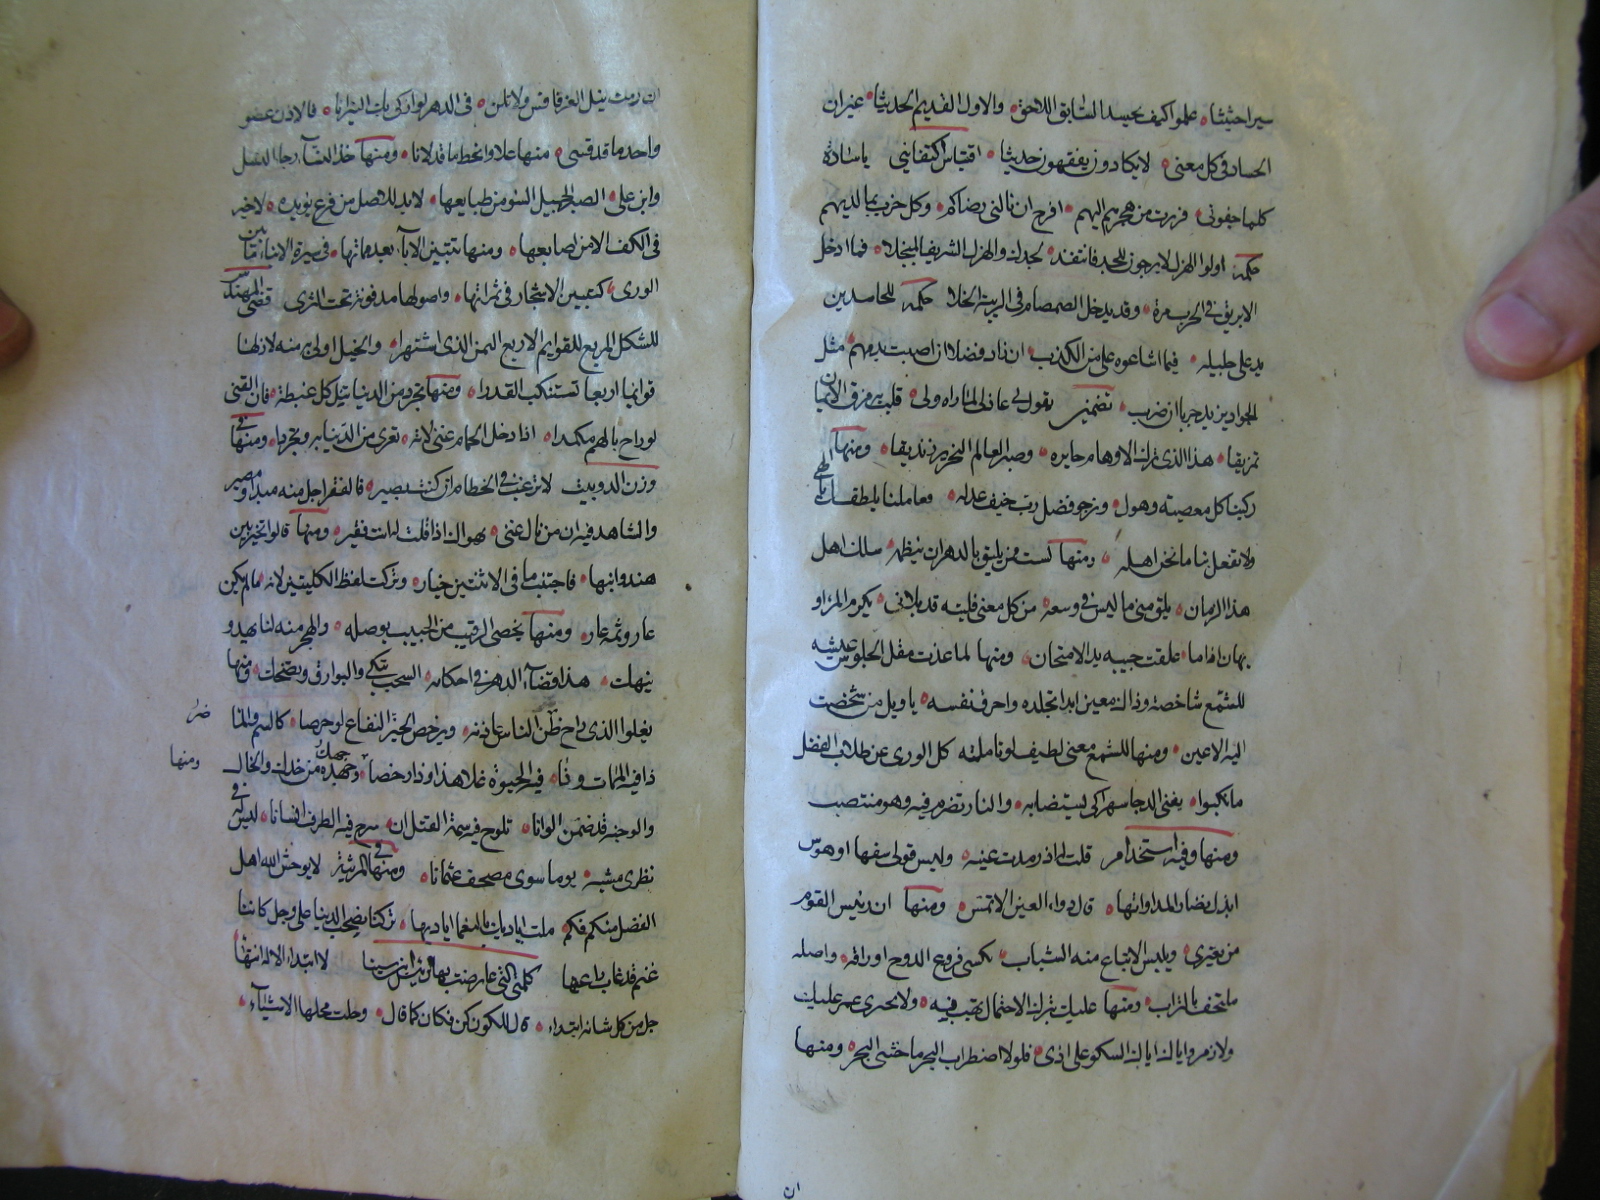 سيرا حثيثا ه علموا كيف يحسد السابق اللاحق ه والاول القديم الحديثا ه غير ان
الحساد في كل معنى ه لا يكادون يفقهون حديثا ه اقتباس اكتفائي يا سادة
كلما جفوني ه فررت من هجرهم اليهم ه افرح ان نالني رضاكم ه وكل حزب بما لديهم
حكمة اولوا الهزل لا يرجون للجد فانتقد ه لجدك والهزل الشريف المبجلا ه فما ادخل
الابريق في الحرب مرة ه وقد يدخل الصمصام في الخلا حكمة للحاسدين
يد على طيله ه فيما اشاعوه على من الكذب ه ان زاد فضلا اصيبت يدهم ه مثل
الجوادين يد جريا ان ضرب ه تضمين يقول لي عاذلي لما راه ولى ه قلب مزق الايمان
تمزيقا ه هذا الذي ترك الاوهام حايره ه وصير العالم النحرير زنديقا ه ومنها
ركبنا كل معصية وهول ه ونرجو فضل رب خيف عدله ه وعاملنا بلطفك يا الهي
ولا تفعل بنا ما نحن اهله ه ومنها لست ممن يليق بالدهر ان ينظر سلك اهل
هذا الزمان ه يلق مني ما ليس في وسعه من كل معنى فليته قد بلاني ه يكرم المرء او
يهان اذا ما ه علقت جيبه يد الامتحان ه ومنها لما غدت مقل الجلوس عشية
للشمع شاخصة وذاك معين ابدا تجلده واحرق نفسه ه يا ويل من شخصت
اليه الاعين ه ومنها للشمع معنى لطيف لو تامله كل الورى عن طلاب الفضل
ما نكبوا ه يفنى الدجا سهرا كي يستضا به ه والنار تضرم فيه وهو منتصب
ومنها وفيه استخدام قلت له اذ رمدت عينه ه وليس قولي سفها او هوس
ابذل نضارا لمداواتها ه قال دواء العين الاتمس ه ومنها ان رئيس القوم
من يعترى ه ويلبس الاتباع منه الشباب ه يكسى فروع الدوح اوراقه ه واصله
ملتحف بالتراب ه ومنها عليك بترك الاحتمال تهب فيه ه ولا يجرى عمر عليك
ولا زمر واياك اياك السكو على اذى ه فلولا اضطراب البحر ما خشى البحر ه ومنها
ان
ان رمت نيل العز فاقس ولا تلن ه في الدهر لو ادركت بك النيرانا ه فالاذن عضو
واحد ما قد قسى ه منها علا وانحط ما قد لانا ه ومنها خذ النسا رجا النسل
وابن على ه الصبر الجميل السو من طبايعها ه لا بد للاصل من فرع يؤيده ه لا خير
في الكف الا من اصابعها ه ومنها تتبين الابآء بعد مماتها ه في سيرة الابناء بين
الورى ه كتبيين الاشجار في ثمراتها ه واصولها مدفونة تحت الثرى قضى المهندس
للشكل المربع للقوايم الاربع اليمن الذي اشتهرا ه والخيل اولى به منه لان لها
قوايما اربعا تستنكب القدرا ه ومنها تجرد من الدنيا تنل كل غبطة ه فان الفتى
لو راح بالهم مكمدا ه اذا دخل الحمام غنى لانه ه تعرى من الدنيا به وتجردا ه ومنها في
وزن الدوبيت لا ترغب في الحطام ان كنت بصير ه فالفقر اجل منه مبدا ومصير
والشاهد فيه ان من نال غنى ه يهواك اذا قلت له انت فقير ه ومنها قالوا تخير بين
هند وابنها ه فاجتنب ما في الاثنتين خياره وتركت لفظ الكليتين لانه ما لم يكن
عار وثمه عار ه ومنها يحظى الرقيب من الحبيب بوصله ه والهجر منه لنا يهيدو
ينهلت ه هذا قضآء الدهر في احكامه السحب تبكي والبوارق تضحك ه ومنها
يغلوا الذي راح ظن الناس عاذنه ه ويرخص الخير النفاع لو حرصا ه كالسم والما
ذا فيه الممات وذا ه فيه الحيوة غلا هذا وذا رخصا ه وجهده من خدك والخال
ومنها
والوجنه قد ضمن الوانا ه تلوح فيه سمة القتل ان ه سرح فيه الطرف انسانا ه ليس في
نظرى مشبه ه يوما سوى مصحف عثمانا ه ومنها في المرثية لا يوحش الله اهل
الفضل منكم فكم ه ملت اياديك بالنعما اياديها ه تركتنا يضحك الدنيا على وجل كاننا
غنم قد غاب راعيها كلمتي التي عارضت بها لا ابتداء الا له انتهآ
جل من كل شانه ابتداء ه قال للكون كن فكان كما قال ه وحلت محلها الاشيآء